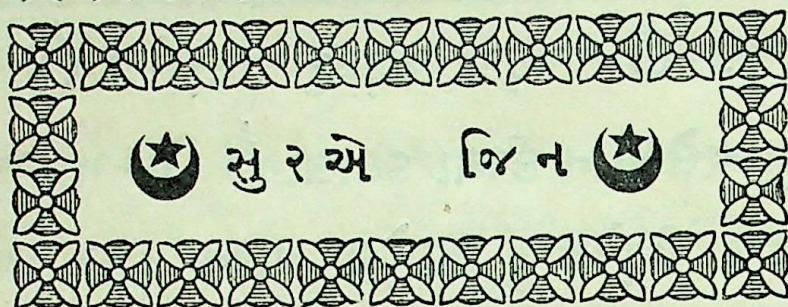 સુરએ જિન